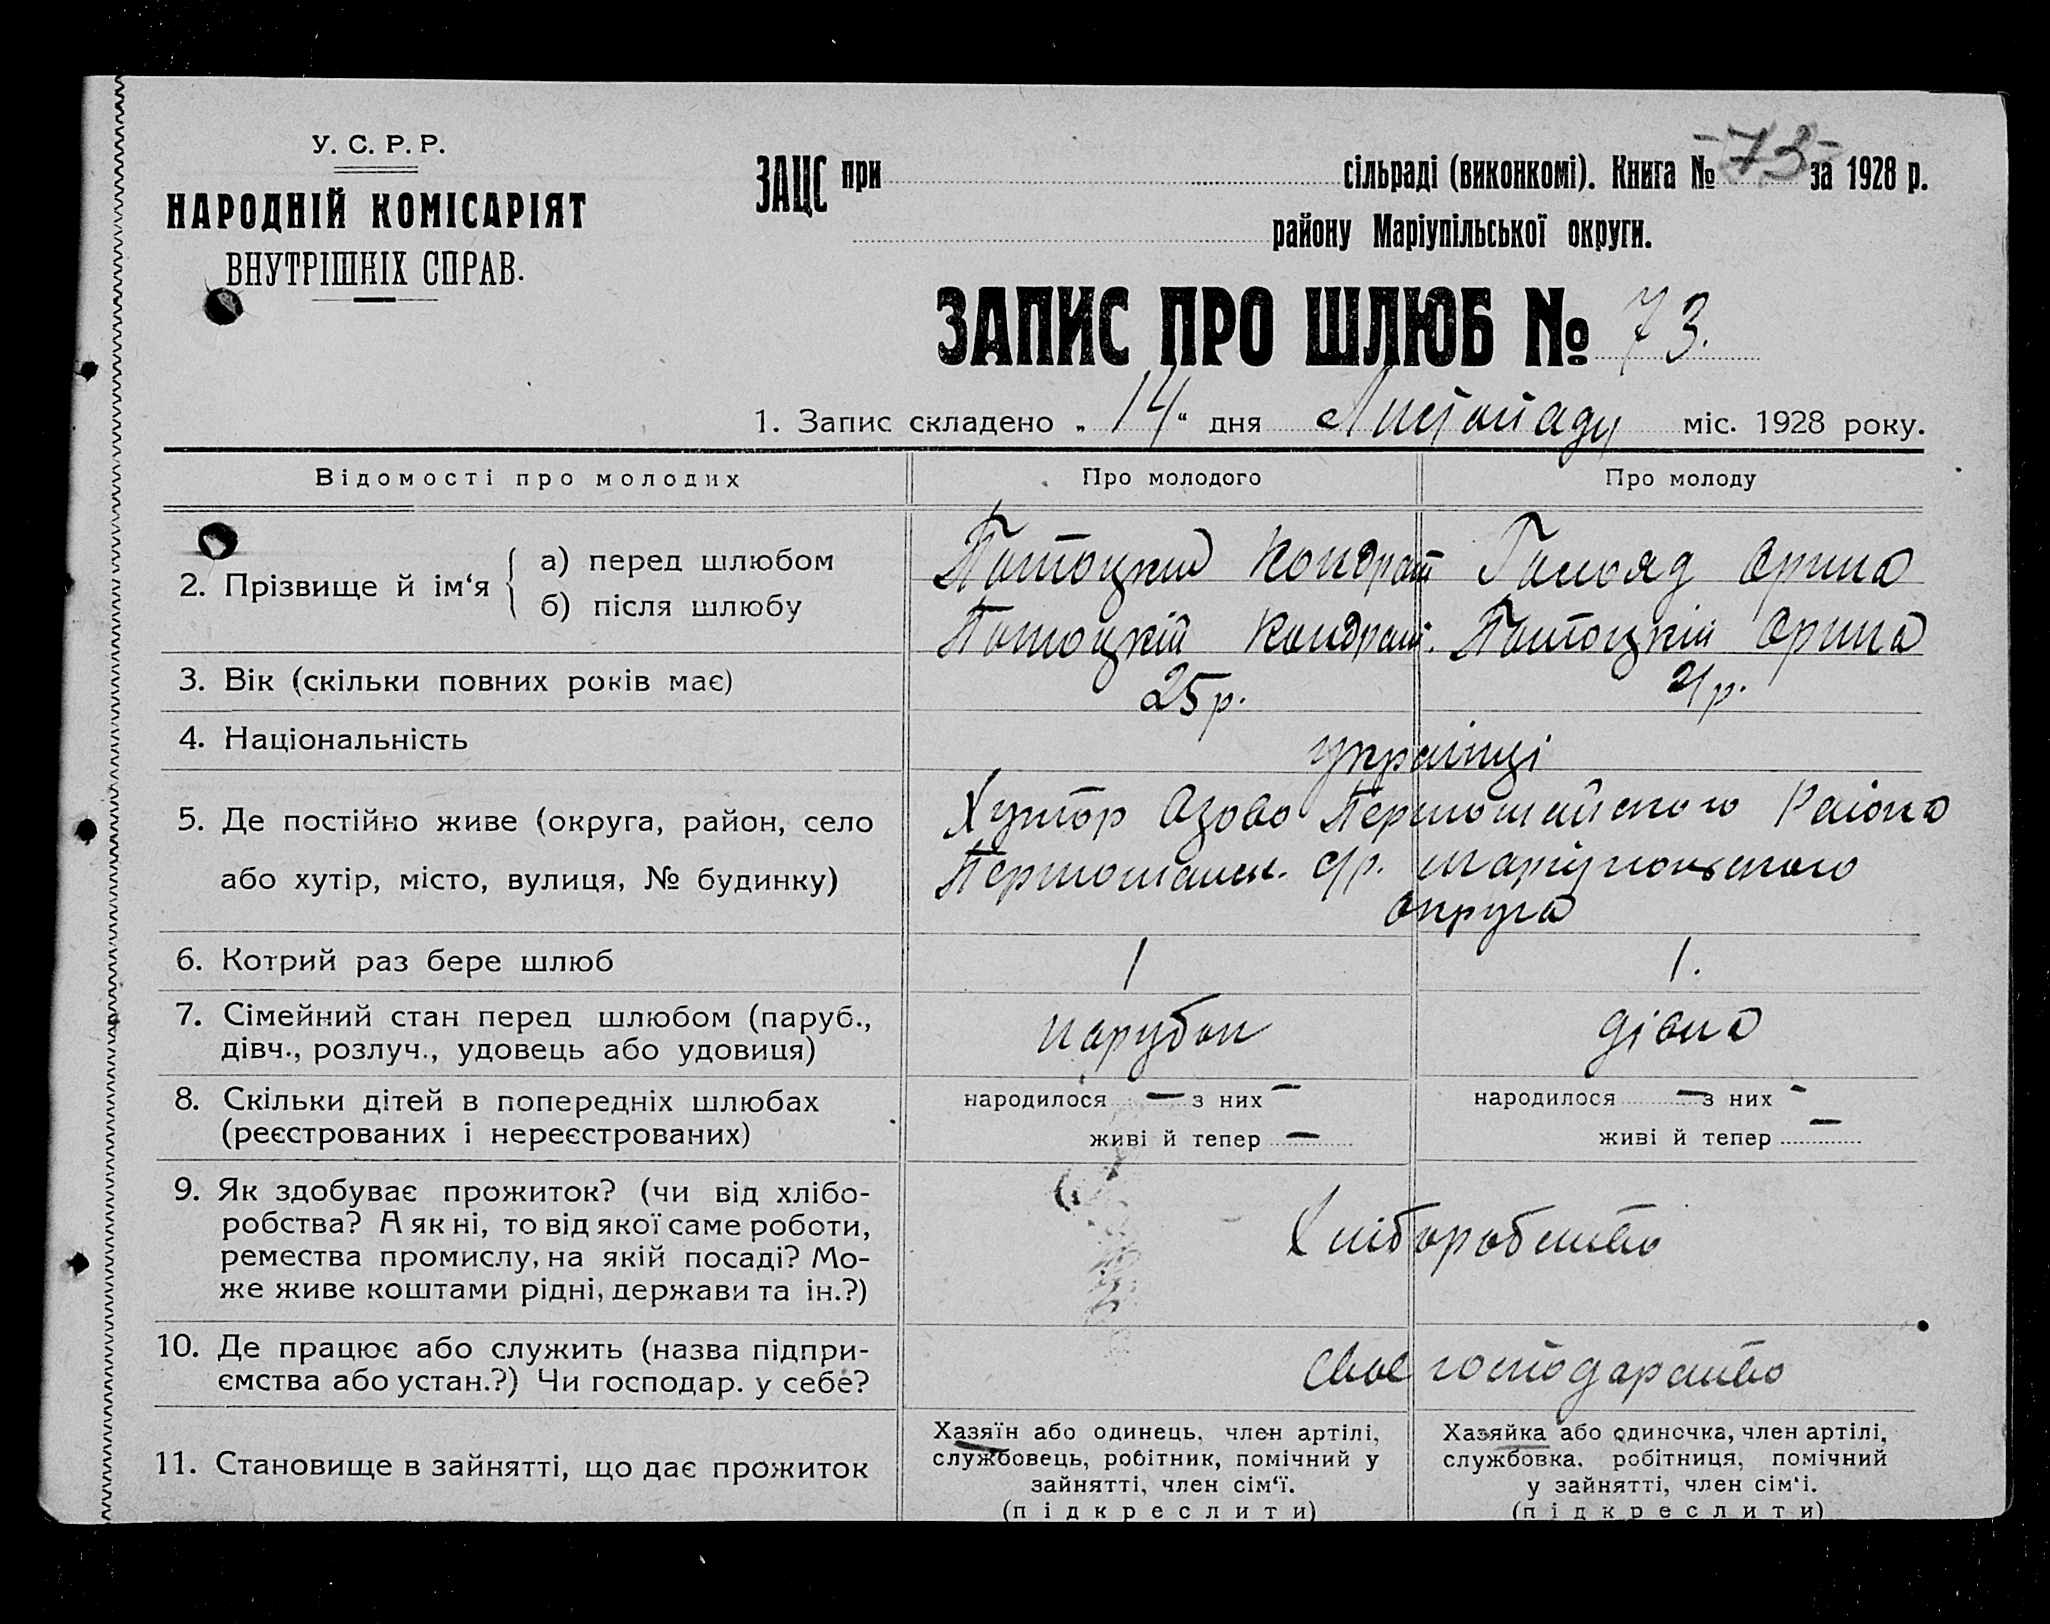 У. С. Р. Р.
НАРОДНІЙ КОМІСАРІЯТ
ВНУТРІШНІХ СПРАВ.
ЗАЦС при сільраді (виконкомі). Книга № -73- за 1928 р.
району Маріупільської округи.
ЗАПИС ПРО ШЛЮБ № 73.
1. Запис складено „ 14 “ дня Листопаду міс. 1928 року.
Відомості про молодих Про молодого Про молоду
2. Прізвище й ім‘я
а) перед шлюбом Потоцкий Кондрат Орина
б) після шлюбу Потоцкій Кондрат. Потоцкій Орина
3. Вік (скільки повних років має) 25 р. 21 р.
4. Національність українці
5. Де постійно живе (округа, район, село Хутор Азово Першомайского Района
або хутір, місто, вулиця, № будинку) Першомайск. с/р. Маріупольского
округа
6. Котрий раз бере шлюб 1 1.
7. Сімейний стан перед шлюбом (паруб., парубок дівка
дівч., розлуч., удовець або удовиця)
8. Скільки дітей в попередніх шлюбах народилося — з них — народилося — з них -
(реєстрованих і нереєстрованих) живі й тепер — живі й тепер —
9. Як здобуває прожиток? (чи від хлібо-
робства? А як ні, то від якої саме роботи, Хліборобство
ремества промислу, на якій посаді? Мо-
же живе коштами рідні, держави та ін.?)
10. Де працює або служить (назва підпри- своє господарство
ємства або устан.?) Чи господар. у себе?
11. Становище в зайнятті, що дає прожиток
Хазяїн або одинець, член артілі,
службовець, робітник, помічний у
зайнятті, член сім‘ї.
(підкреслити)
Хазяйка або одиночка, член артілі,
службовка, робітниця, помічний
у зайнятті, член сім‘і.
(підкреслити)